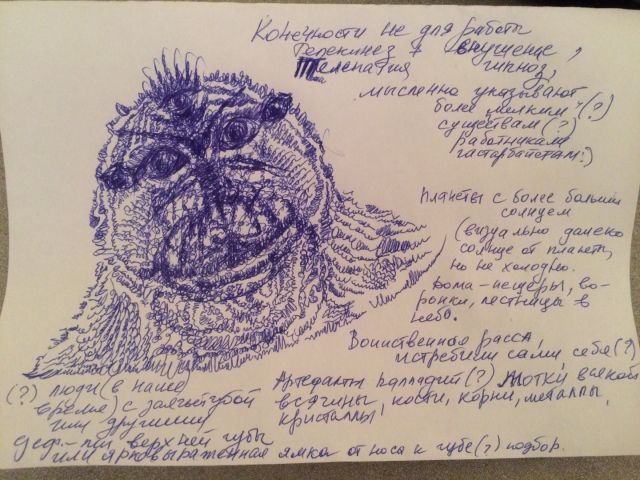 Конечности не для работы
Телекинез + внушение,
Телепатия гипноз,
мысленно указывают
более мелким (?)
существам (?)
работникам
гастарбайтерам :)
Планеты с более большим
солнцем
(визуально далеко
солнце от планеты,
но не холодно.
Дома - пещеры, во-
ронки, лестницы в
небо.
Воинственная раса,
истребили сами себя (?)
(?) люди (в наше
время) с заячьей губой
или другими
деф-ми верхней губы
или ярковыраженная ямка от носа к губе (?) подбор.
Артефакты палладий (?) Мотки всякой
всячины, кости, корни, металлы,
кристаллы,